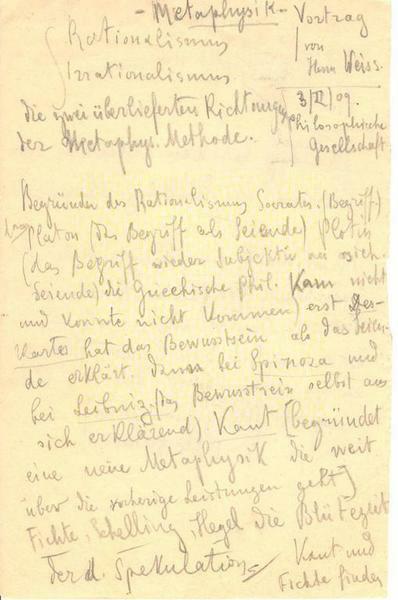 - Metaphysik -
Vortrag
von
Herrn Weiss.
3/II/09.
philosophische
Gesellschaft
Rationalismus
Irrationalismus
die zwei überlieferten Richtungen
der Metaphys. Methode.
Begründer des Rationalismus Socrates. (Begriff)
Platon (des Begriff als Seiende) Plotin
(das Begriff wieder Subjektiv an sich
Seiende) die Griechische Phil. Kam nicht
und konnte nicht Kommen) erst Des-
kartes hat das Bewusstsein als das Seien-
de erklärt dann bei Spinoza und
bei Leibniz. (das Bewusstsein selbst aus
sich erklärend). Kant (begründet
eine neue Metaphysik die weit
über die vorherige Leistungen geht)
Fichte, Schelling, Hegel die Blütezeit
der d. Spekulation
Kant und
Fichte finden